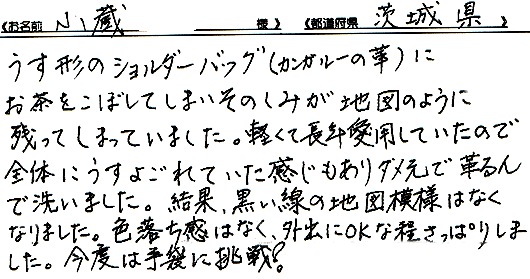 《お名前 小蔵 様》《都道府県 茨城県 》
うす形のショルダーバッグ(カンガルーの革)に
お茶をこぼしてしまいそのしみが地図のように
残ってしまっていました。軽くて長年愛用していたので
全体にうすよごれていた感じもありダメ元で革るん
で洗いました。結果、黒い線の地図模様はなく
なりました。色落ち感はなく、外出にOKな程さっぱりしま
した。今度は手袋に挑戦?